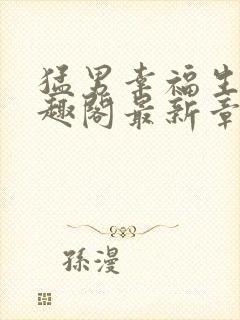 猛男幸福生
趣阁最新章
孫漫